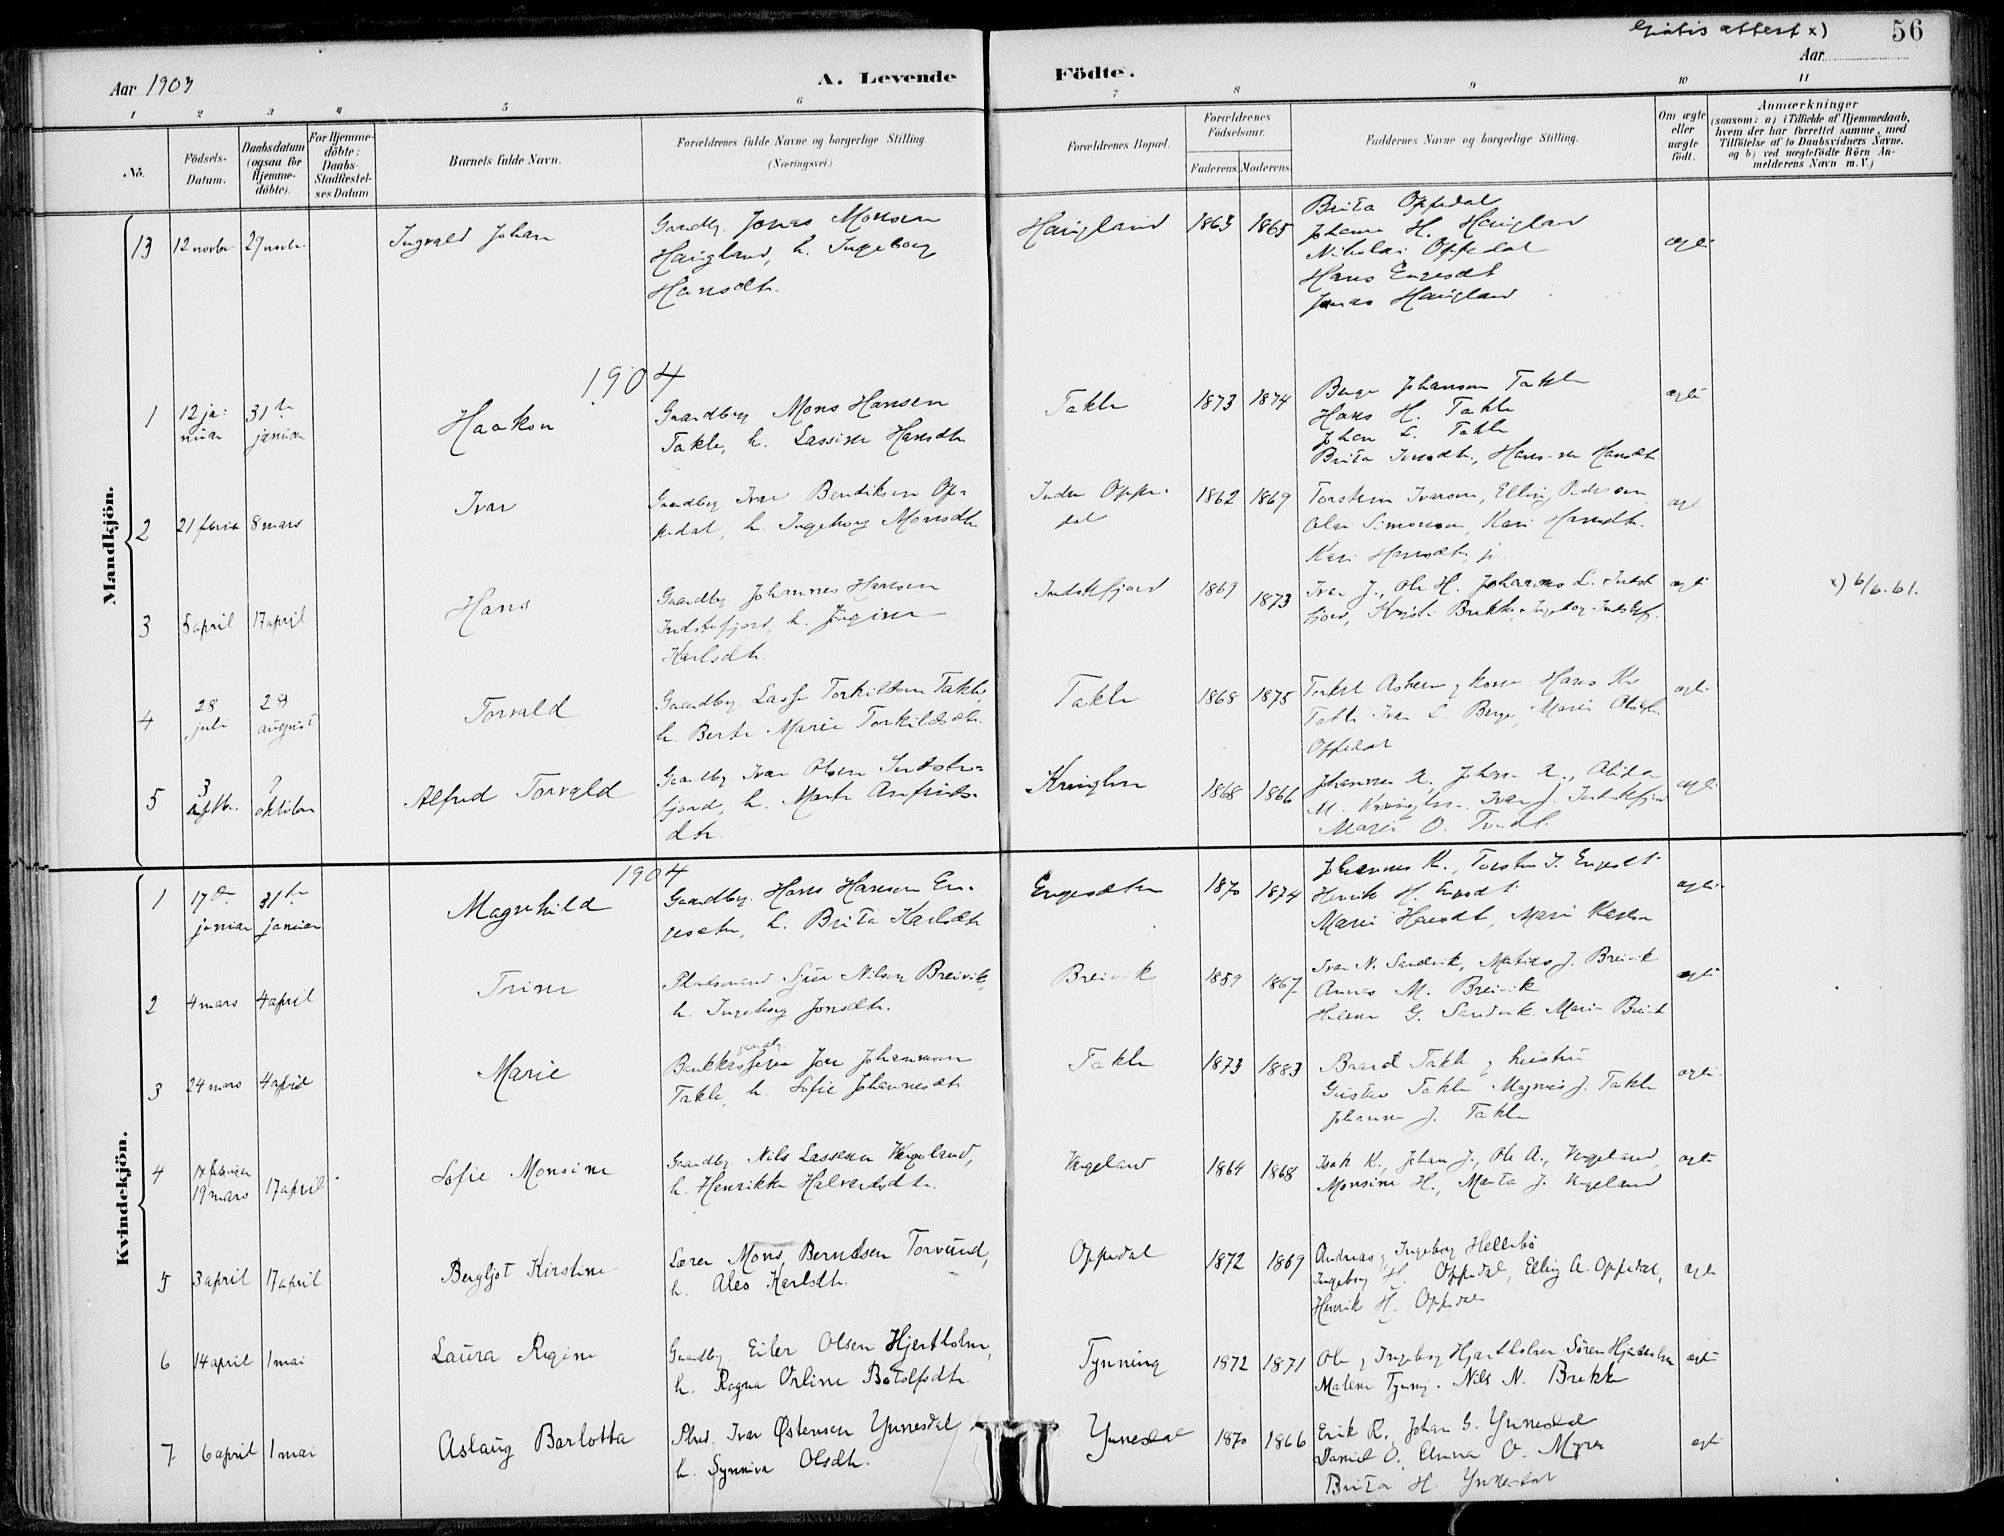 Gratis attest x)
56
Aar 1903
A. Levende
Födte.
Aar
1 2 3 4 5 6 7 8 9 10 11
No.
Födsels-Datum.
Daabsdatum (ogsaa for Hjemme-döbte).
For Hjemme-döbte: Daabs-Stadfæstel-ses Datum
Barnets fulde Navn.
Forældrenes fulde Navne og borgerlige Stilling. (Næringsvei.)
Forældrenes Bopæl.
Forældrenes Födselsaar.
Faderens. Moderens.
Faddernes Navne og borgerlige Stilling.
Om ægte eller uægte født.
Anmærkninger
(saasom: a) i Tilfælde af Hjemmedaab, hvem der har forrettet samme, med Tilföielse af to Daabsvidners Navne, og b) ved uægtefödte Börn An-melderens Navn m. V.)
Mandkjön.
13 12 novbr 27 novbr. Ingvald Johan
Gaardbr. Jonas Monsen
Haugland, h. Ingeborg
Hansdtr.
Haugland 1863 1865
Brita Oppedal
Johanne H. Haugland
Nikolai Oppedal
Hans Engesæt
Jonas Haugland
ægte
1904
1 12 januar 31te januar Haakon
Gaardbr. Mons Hansen
Takle, h. Lassine Hansdtr.
Takle 1873 1874
Berge Johansen Takle
Hans H. Takle
Johan L. Takle
Brita Hansdtr.
ægte
2 21 februar 8 mars Ivar
Gaardbr. Ivar Bendiksen Op-
pedal, h. Ingeborg Monsdtr.
Indre Oppe-
dal
1862 1869
Torstein Ivarsen, Elling Pedersen
Ola Simonsen, Kari Hansdtr.
Kari Hansdtr. jr.
ægte
3 5 april 17 april Hans
Gaardbr. Johannes Hansen
Indstefjord, h. Jørgine
Karlsdtr.
Indstefjord 1869 1873
Ivar J., Ole H. Johannes L. Indste
fjord, Brekke, Ingeborg Indstef.
ægte
x) 6/6.61.
4 28 juli 28 august Torvald
Gaardbr. Lasse Torkildsen Takle,
h. Berte Marie Torkildsdtr.
Takle 1868 1875
Hans
Takle Ivar L. Berge, Marie Olsdtr.
Oppedal
ægte
5 3 septbr. oktober Alfred Torvald
Gaardbr. Ivar Olsen Indste-
fjord, h. Marte Anfinds-
dtr.
Kringlen 1868 1866
M. Kringlen Ivar J. Indstefjord
Marie O.
ægte
Kvindekjön.
1904
1 17de januar 31te januar Magnhild
Gaardbr. Hans Hansen En-
gesæter, h. Brita Karlsdtr.
Engesæter 1870 1874
Johannes K., Torsten I. Engesæt
Henrik H. Engesæt
Marie Hansdtr., Marie Karlsen
ægte
2 4 mars 4 april Trine
Pladsmand Sjur Nilsen Breivik,
h. Ingeborg Jonsdtr.
Breivik 1859 1867
Ivar N. Sandvik, Matias J. Breivik
Annas M. Breivik
Helene G. Sandvik Marie Breivik
ægte
3 24 mars 4 april Marie
Jon Johannesen
Takle, h. Sofie Johannesdtr.
Takle 1873 1883
Baard Takle og hustru
Gustav Takle Magnus J. Takle
Johanne J. Takle
ægte
4 19 mars 17 april Sofie Monsine
Gaardbr. Nils Lassesen Vergeland,
h. Henrikke Halvorsdtr.
Vergeland 1864 1868
Isak K., Johan J., Ole A., Vergeland,
Monsine H., Marta J. Vergeland
ægte
5 3 april 17 april Bergljot Kirstine
Lærer Mons Berndsen Torvund,
h. Ales Karlsdtr.
Oppedal 1872 1869
Andreas og Ingeborg Hellebö
Ingeborg H. Oppedal, Elling A. Oppedal,
Henrik H. Oppedal
ægte
6 14 april 1 mai Laura Regine
Gaardbr. Eiler Olsen Hjertholm,
h. Ragna Orline Botolfsdtr.
Tynning 1872 1871
Ole og Ingeborg Hjertholm Sören Hjertholm
Malene Tynning. Nils N. Brekke
ægte
7 6 april 1 mai Aslaug Barlotta
Plds. Ivar Østensen Ynnesdal
h. Synniva Olsdtr.
Ynnesdal 1870 1866
Erik R., Johan G. Ynnesdal
Daniel O. Anna O. Myren
Brita H. Ynnesdal
ægte